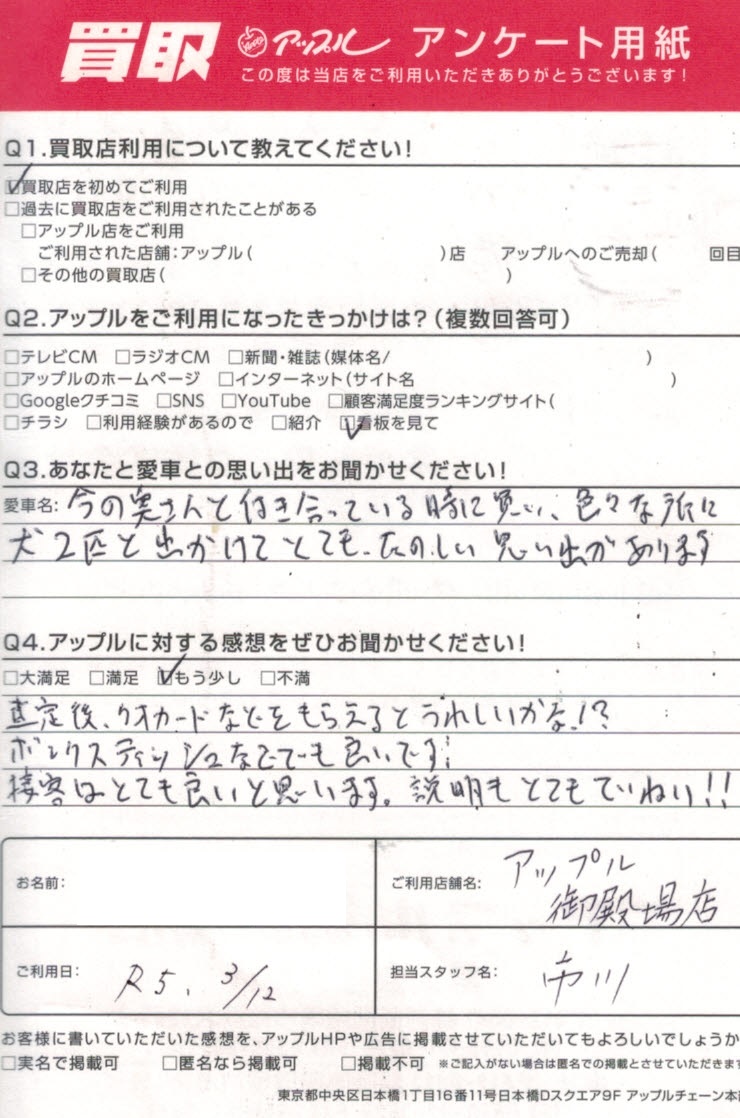 買取 アップル アンケート用紙
この度は当店をご利用いただきありがとうございます!
Q1.買取店利用について教えてください!
☑買取店を初めてご利用
□過去に買取店をご利用されたことがある
□アップル店をご利用
ご利用された店舗:アップル( )店 アップルへのご売却( 回目
□その他の買取店( )
Q2.アップルをご利用になったきっかけは?(複数回答可)
□テレビCM □ラジオCM □新聞・雑誌(媒体名/ )
□アップルのホームページ □インターネット(サイト名 )
□Googleクチコミ □SNS □YouTube □顧客満足度ランキングサイト(
□チラシ □利用経験があるので □紹介 ☑看板を見て
Q3.あなたと愛車との思い出をお聞かせください!
愛車名: 今の奥さんと付き合っている時に買い、色々な旅に
犬2匹と出かけてとても、たのしい思い出があります
Q4.アップルに対する感想をぜひお聞かせください!
□大満足 □満足 ☑もう少し □不満
査定後、クオカードなどをもらえるとうれしいかな!?
ボックスティッシュなどでも良いです!
接客はとても良いと思います。説明もとてもていねい!!
お名前:
ご利用店舗名: アップル
御殿場店
ご利用日: R5. 3/12
担当スタッフ名: 市川
お客様に書いていただいた感想を、アップルHPや広告に掲載させていただいてもよろしいでしょうか
□実名で掲載可 □匿名なら掲載可 □掲載不可 ※ご記入がない場合は匿名での掲載とさせていただきます
東京都中央区日本橋1丁目16番11号日本橋Dスクエア9F アップルチェーン本